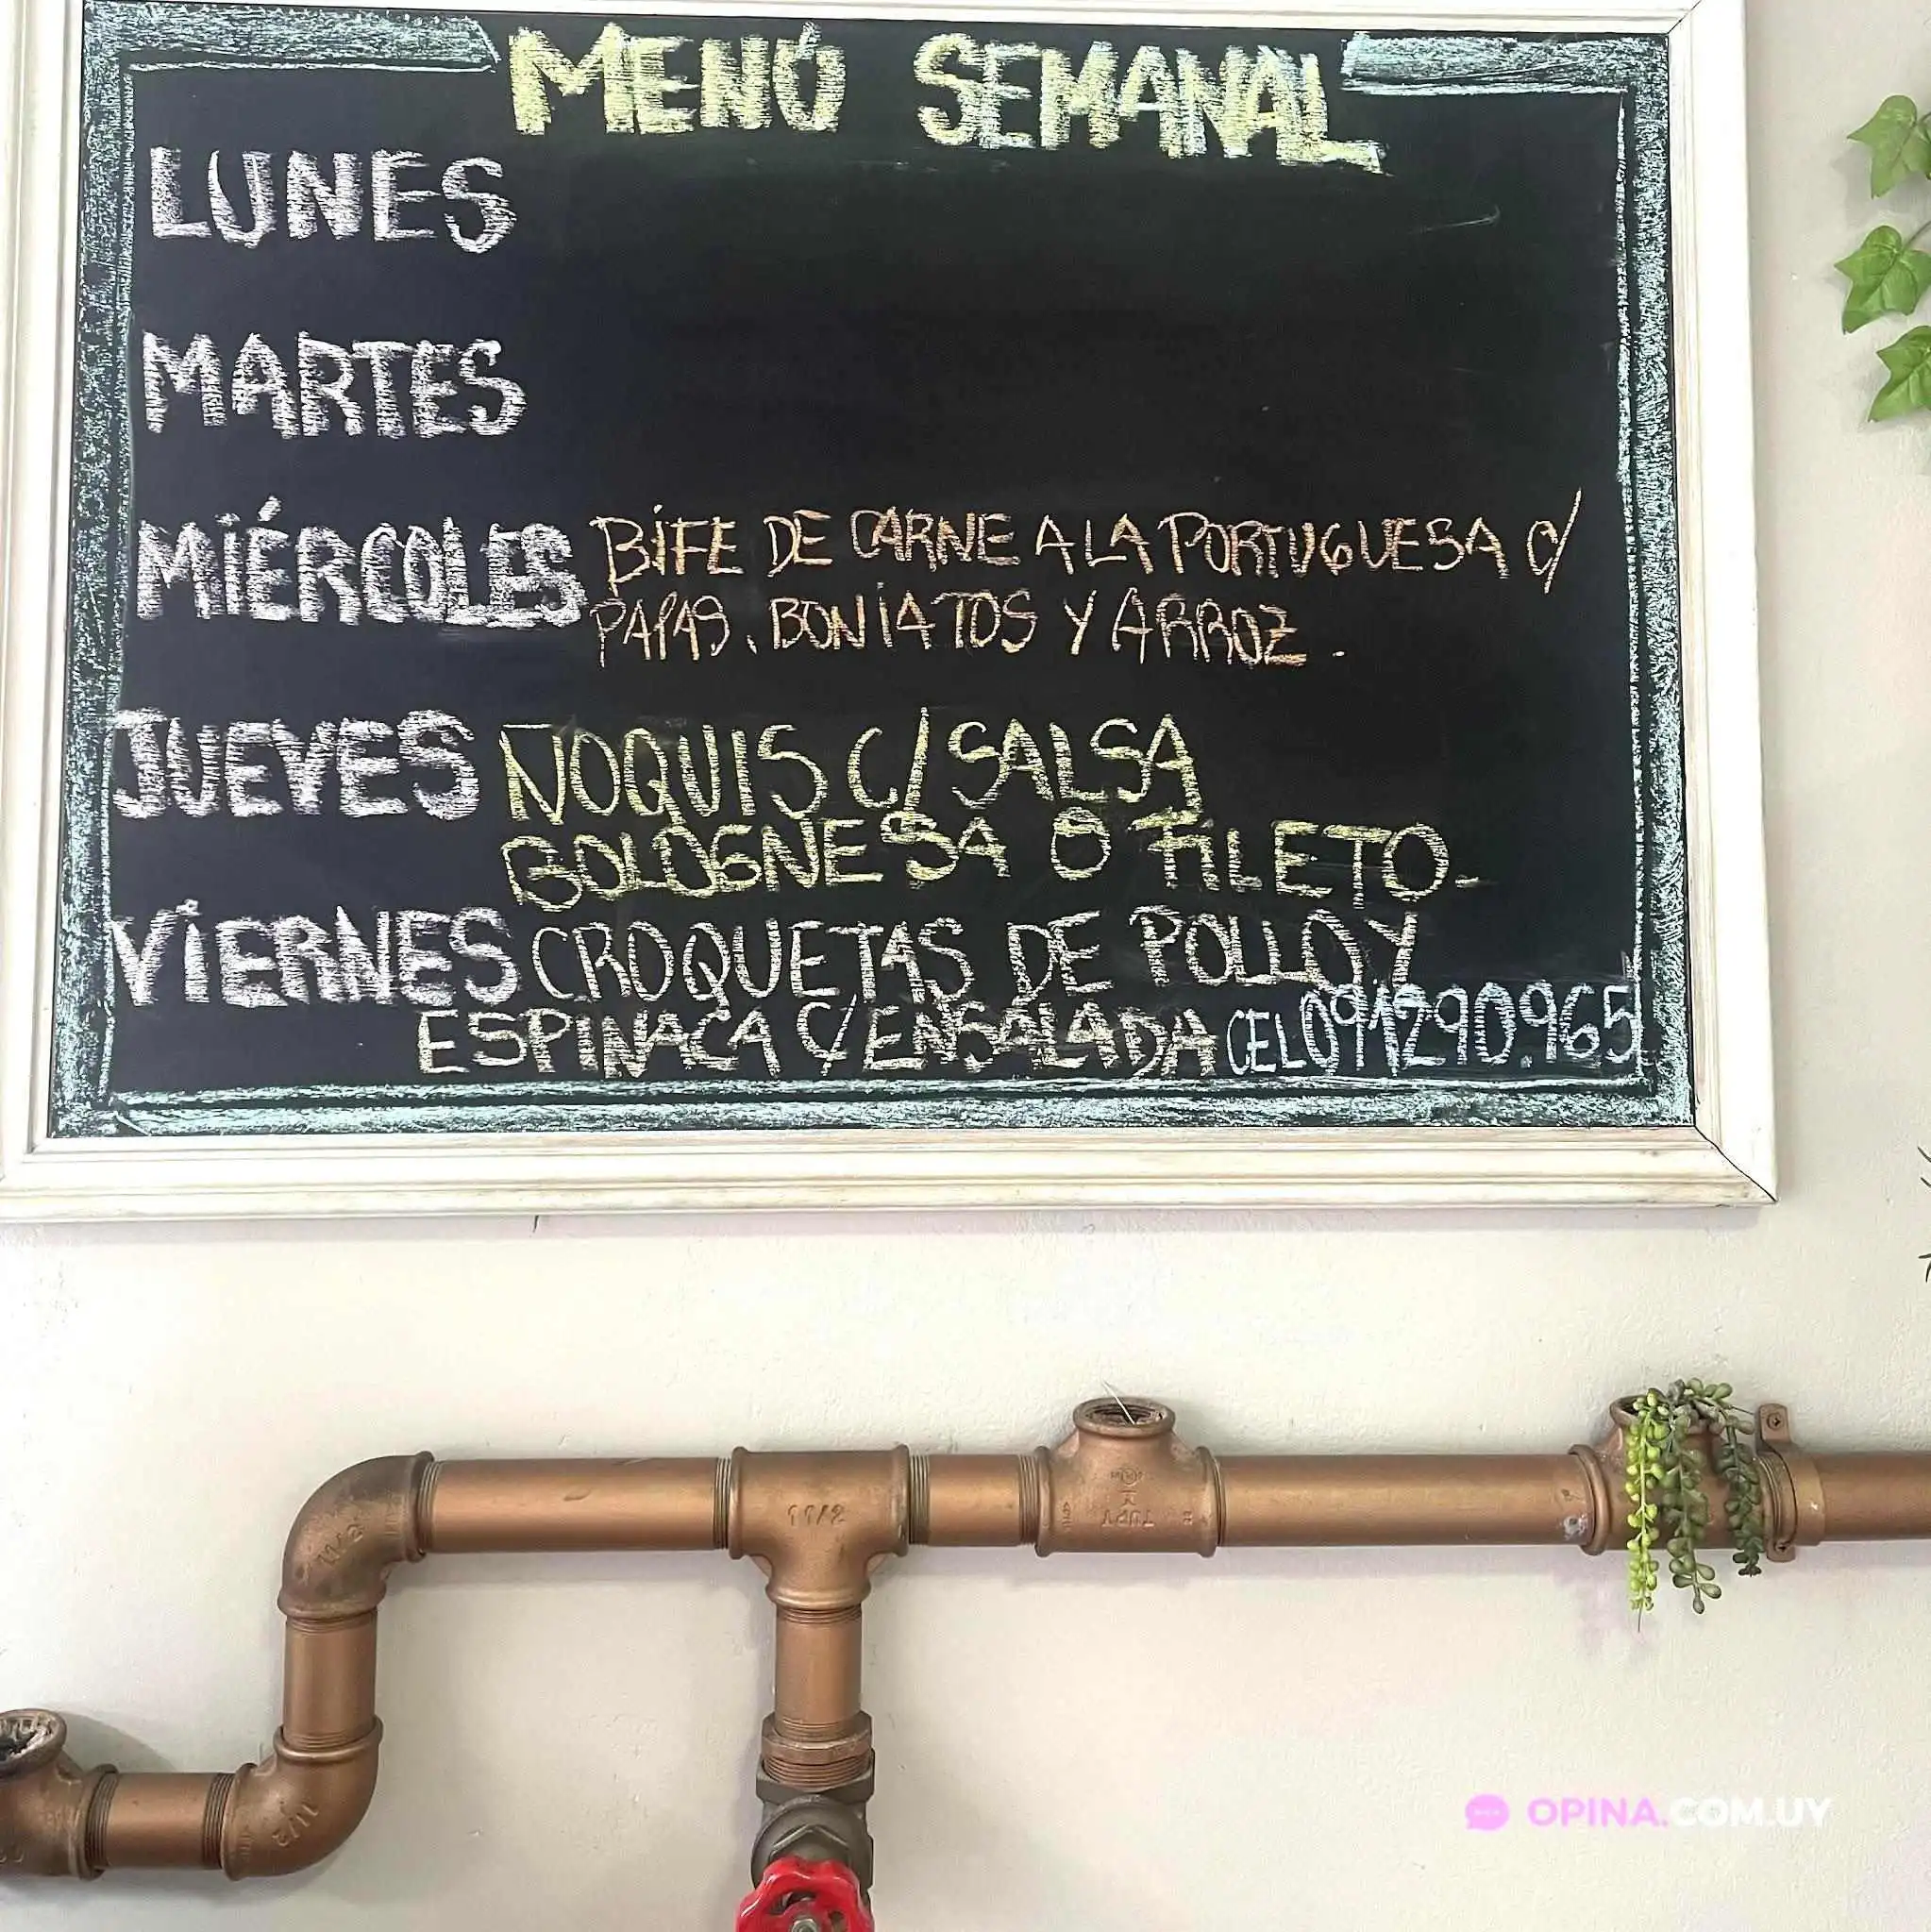 MENÚ SEMANAL
LUNES
MARTES
MIÉRCOLES BIFE DE CARNE A LA PORTUGUESA C/
PAPAS, BONIATOS Y ARROZ.
JUEVES ÑOQUIS C/SALSA
BOLOGNESA O FILETO.
VIERNES CROQUETAS DE POLLO Y
ESPINACA C/ENSALADA CEL 091290.965
11/2
11/2
TUPY
11/2
OPINA.COM.UY